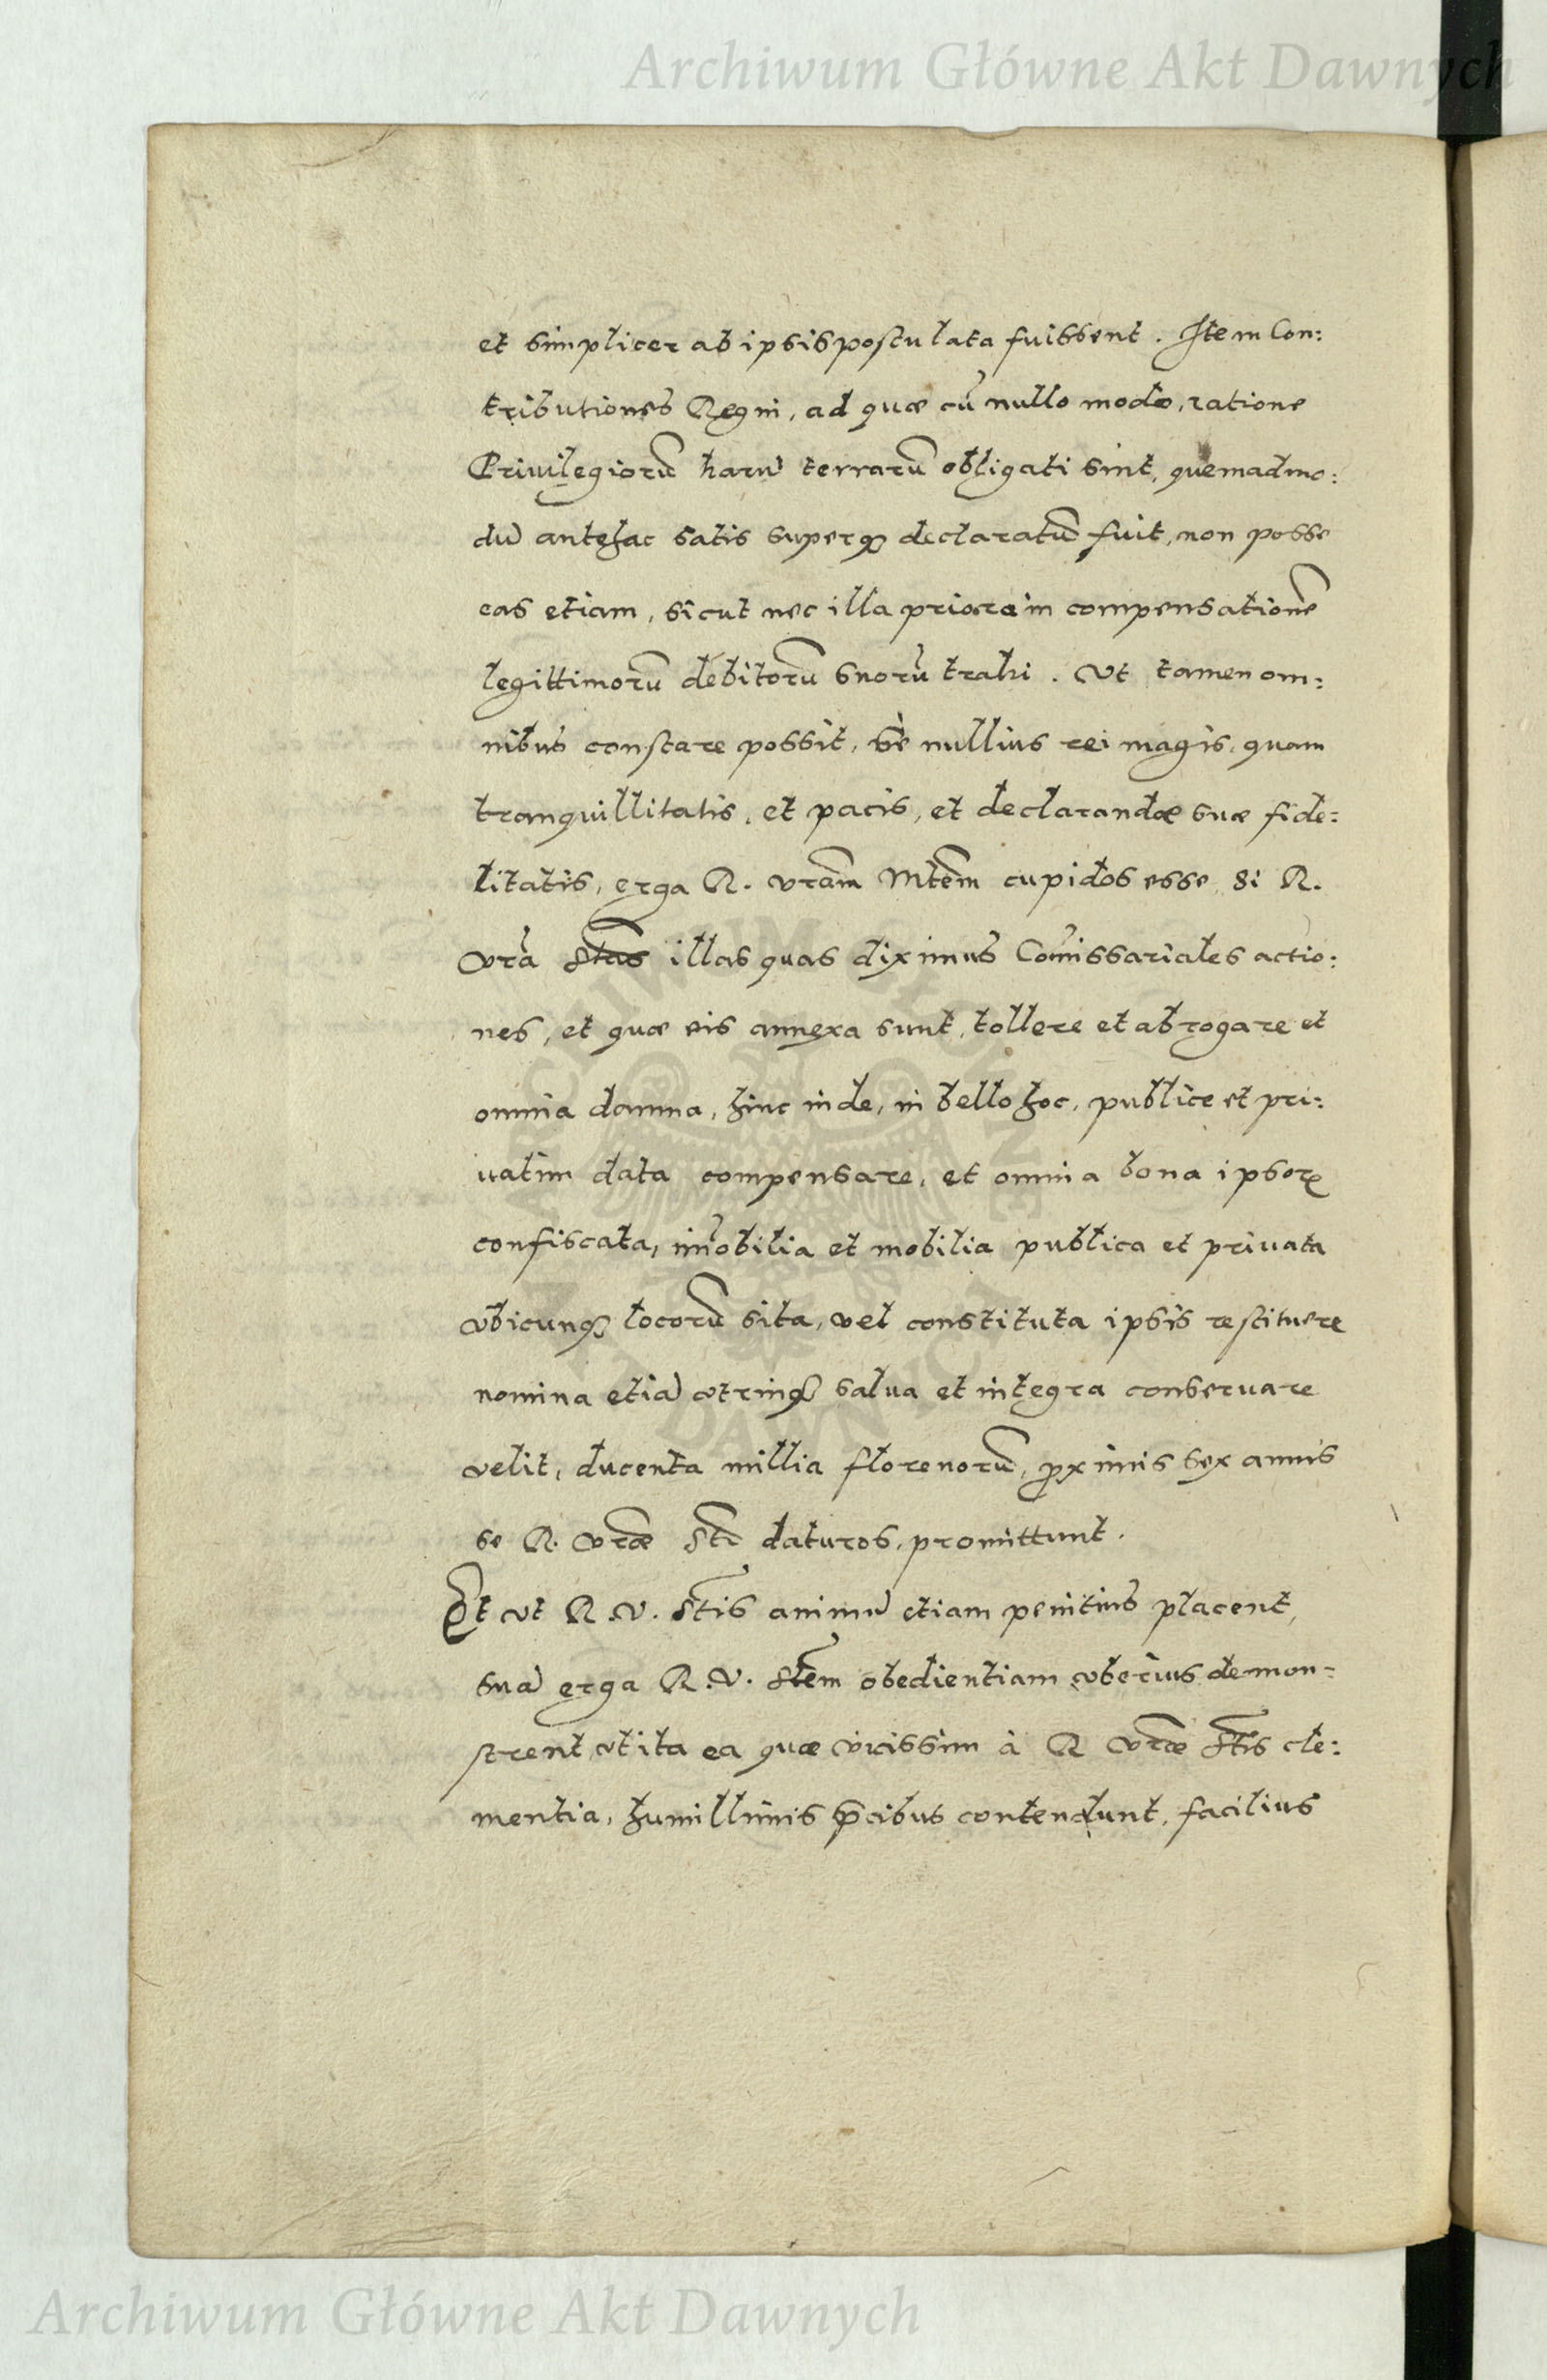 Archiwum Główne Akt Dawnych
et simplicer ab ipsis postulata fuissent. Item Con:
tributiones Regni, ad quæ cũ nullo modo, ratione
Priuilegiorũ harũ terrarũ obligati sint, quemadmo:
dũ antehac satis superq; declaratũ fuit, non posse
eas etiam, sicut nec illa priora in compensationẽ
legittimorũ debitorũ suorũ trahi. Vt tamen om:
nibus constare possit, sẽ nullius rei magis, quam
tranquillitatis, et pacis, et declarandæ suæ fide:
litatis, erga R. vrãm Mtẽm cupidos esse, si R.
Vrã Stas illas quas diximus Com̃issariales actio:
nes, et quæ eis annexa sunt, tollere et abrogare et
omnia damna, hinc inde, in bello hoc, publice et pri:
uatim data compensare, et omnia bona ipsorꝝ
confiscata, im̃obilia et mobilia publica et priuata
vbicunq; locorũ sita, vel constituta ipsis restituere
nomina etiã vtrinq; salua et integra conseruare
velit, ducenta millia florenorũ, ꝓximis sex annis
se R. Vræ̃ Sti daturos, promittunt.
Et vt R. V. Stis animũ etiam penitius placent,
suã erga R. V. Stẽm obedientiam vberius demon=
strent, vt ita ea quæ vicissim à R Vræ̃ Stis cle:
mentia, humillimis p̃cibus contendunt, facilius
ARCHIWUM GŁÓWNE AKT DAWNYCH
Archiwum Główne Akt Dawnych